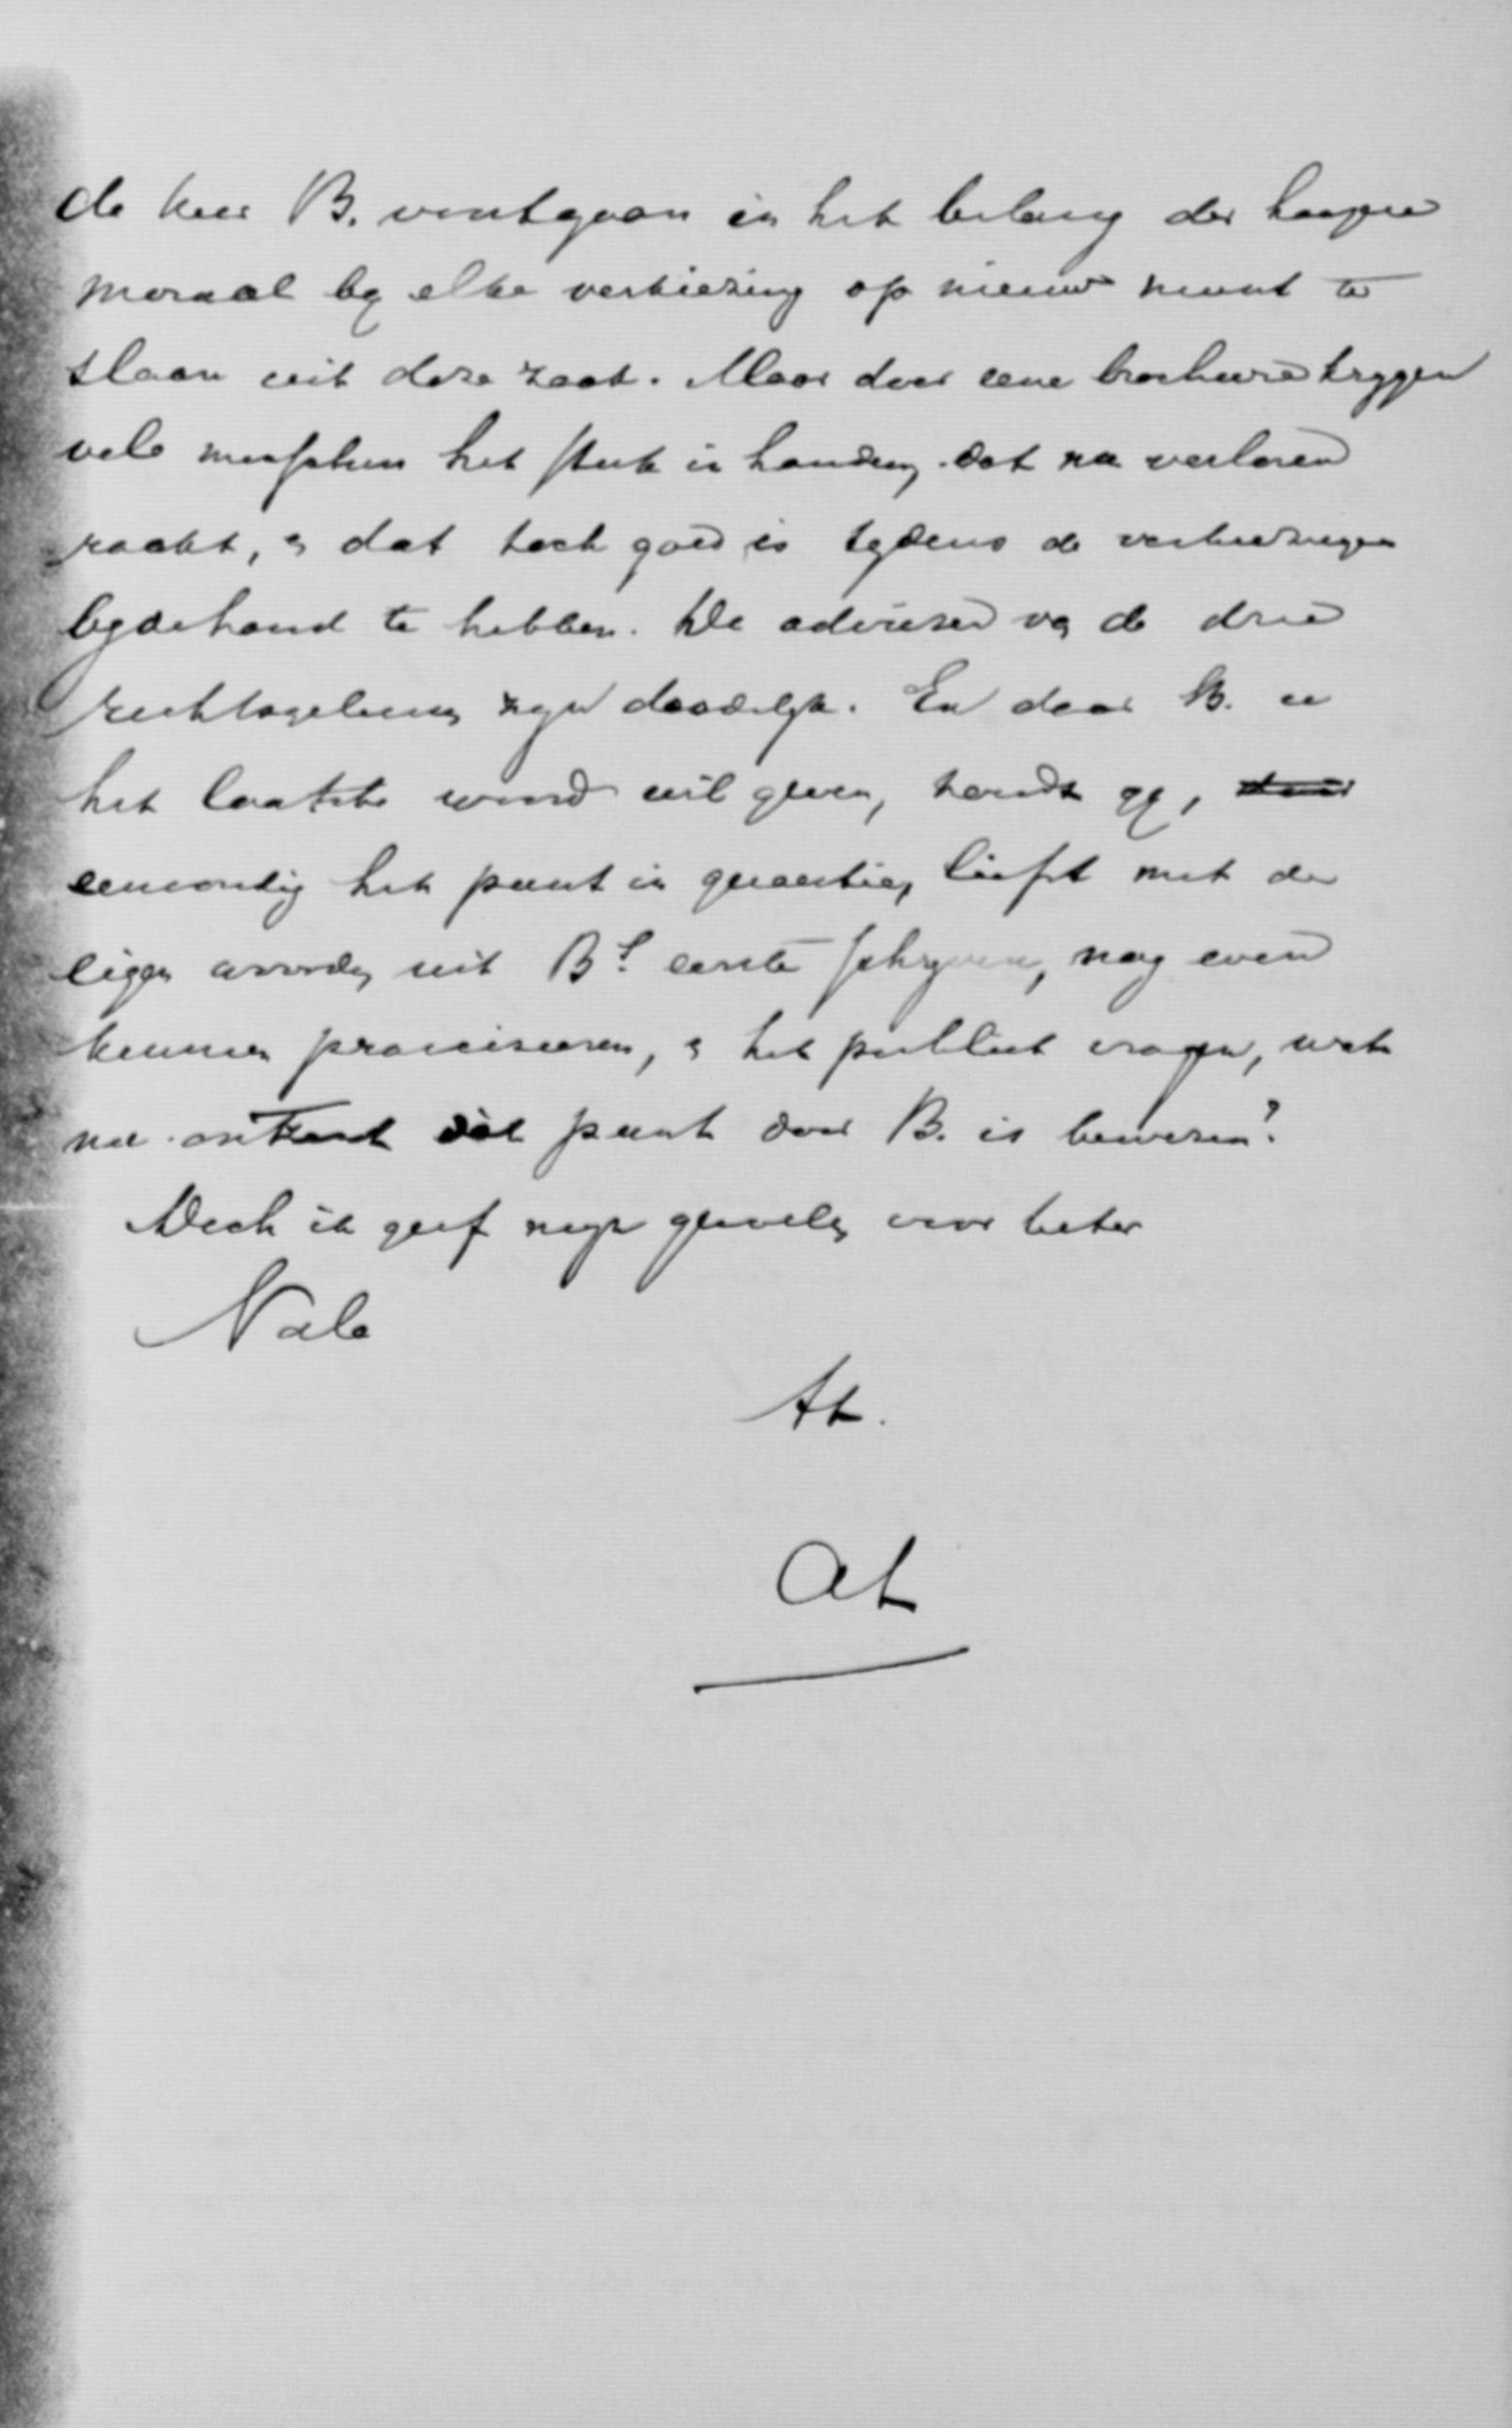 de heer B. voortgaan in het belang der hoogere
moraal by elke verkiezing op nieuw munt te
slaan uit deze zaak. Maar door eene brochure krygen
vele menschen het stuk in handen, dat nu verloren
raakt, & dat toch goed is tydens de verkiezingen
bydehand te hebben. De adviezen van de drie
rechtsgeleerden zyn doodelyk. En daar B. u
het laatste woord wil geven, zoudt gy,
eenvoudig het punt in quaestie, liefst met de
eigen woorden uit B's eerste schryven, nog even
kunnen praeciseeren, & het publiek vragen, wat
nu omtrent dat punt door B. is bewezen?
Doch ik geef myn gevoelen voor beter
Vale
tt.
AK